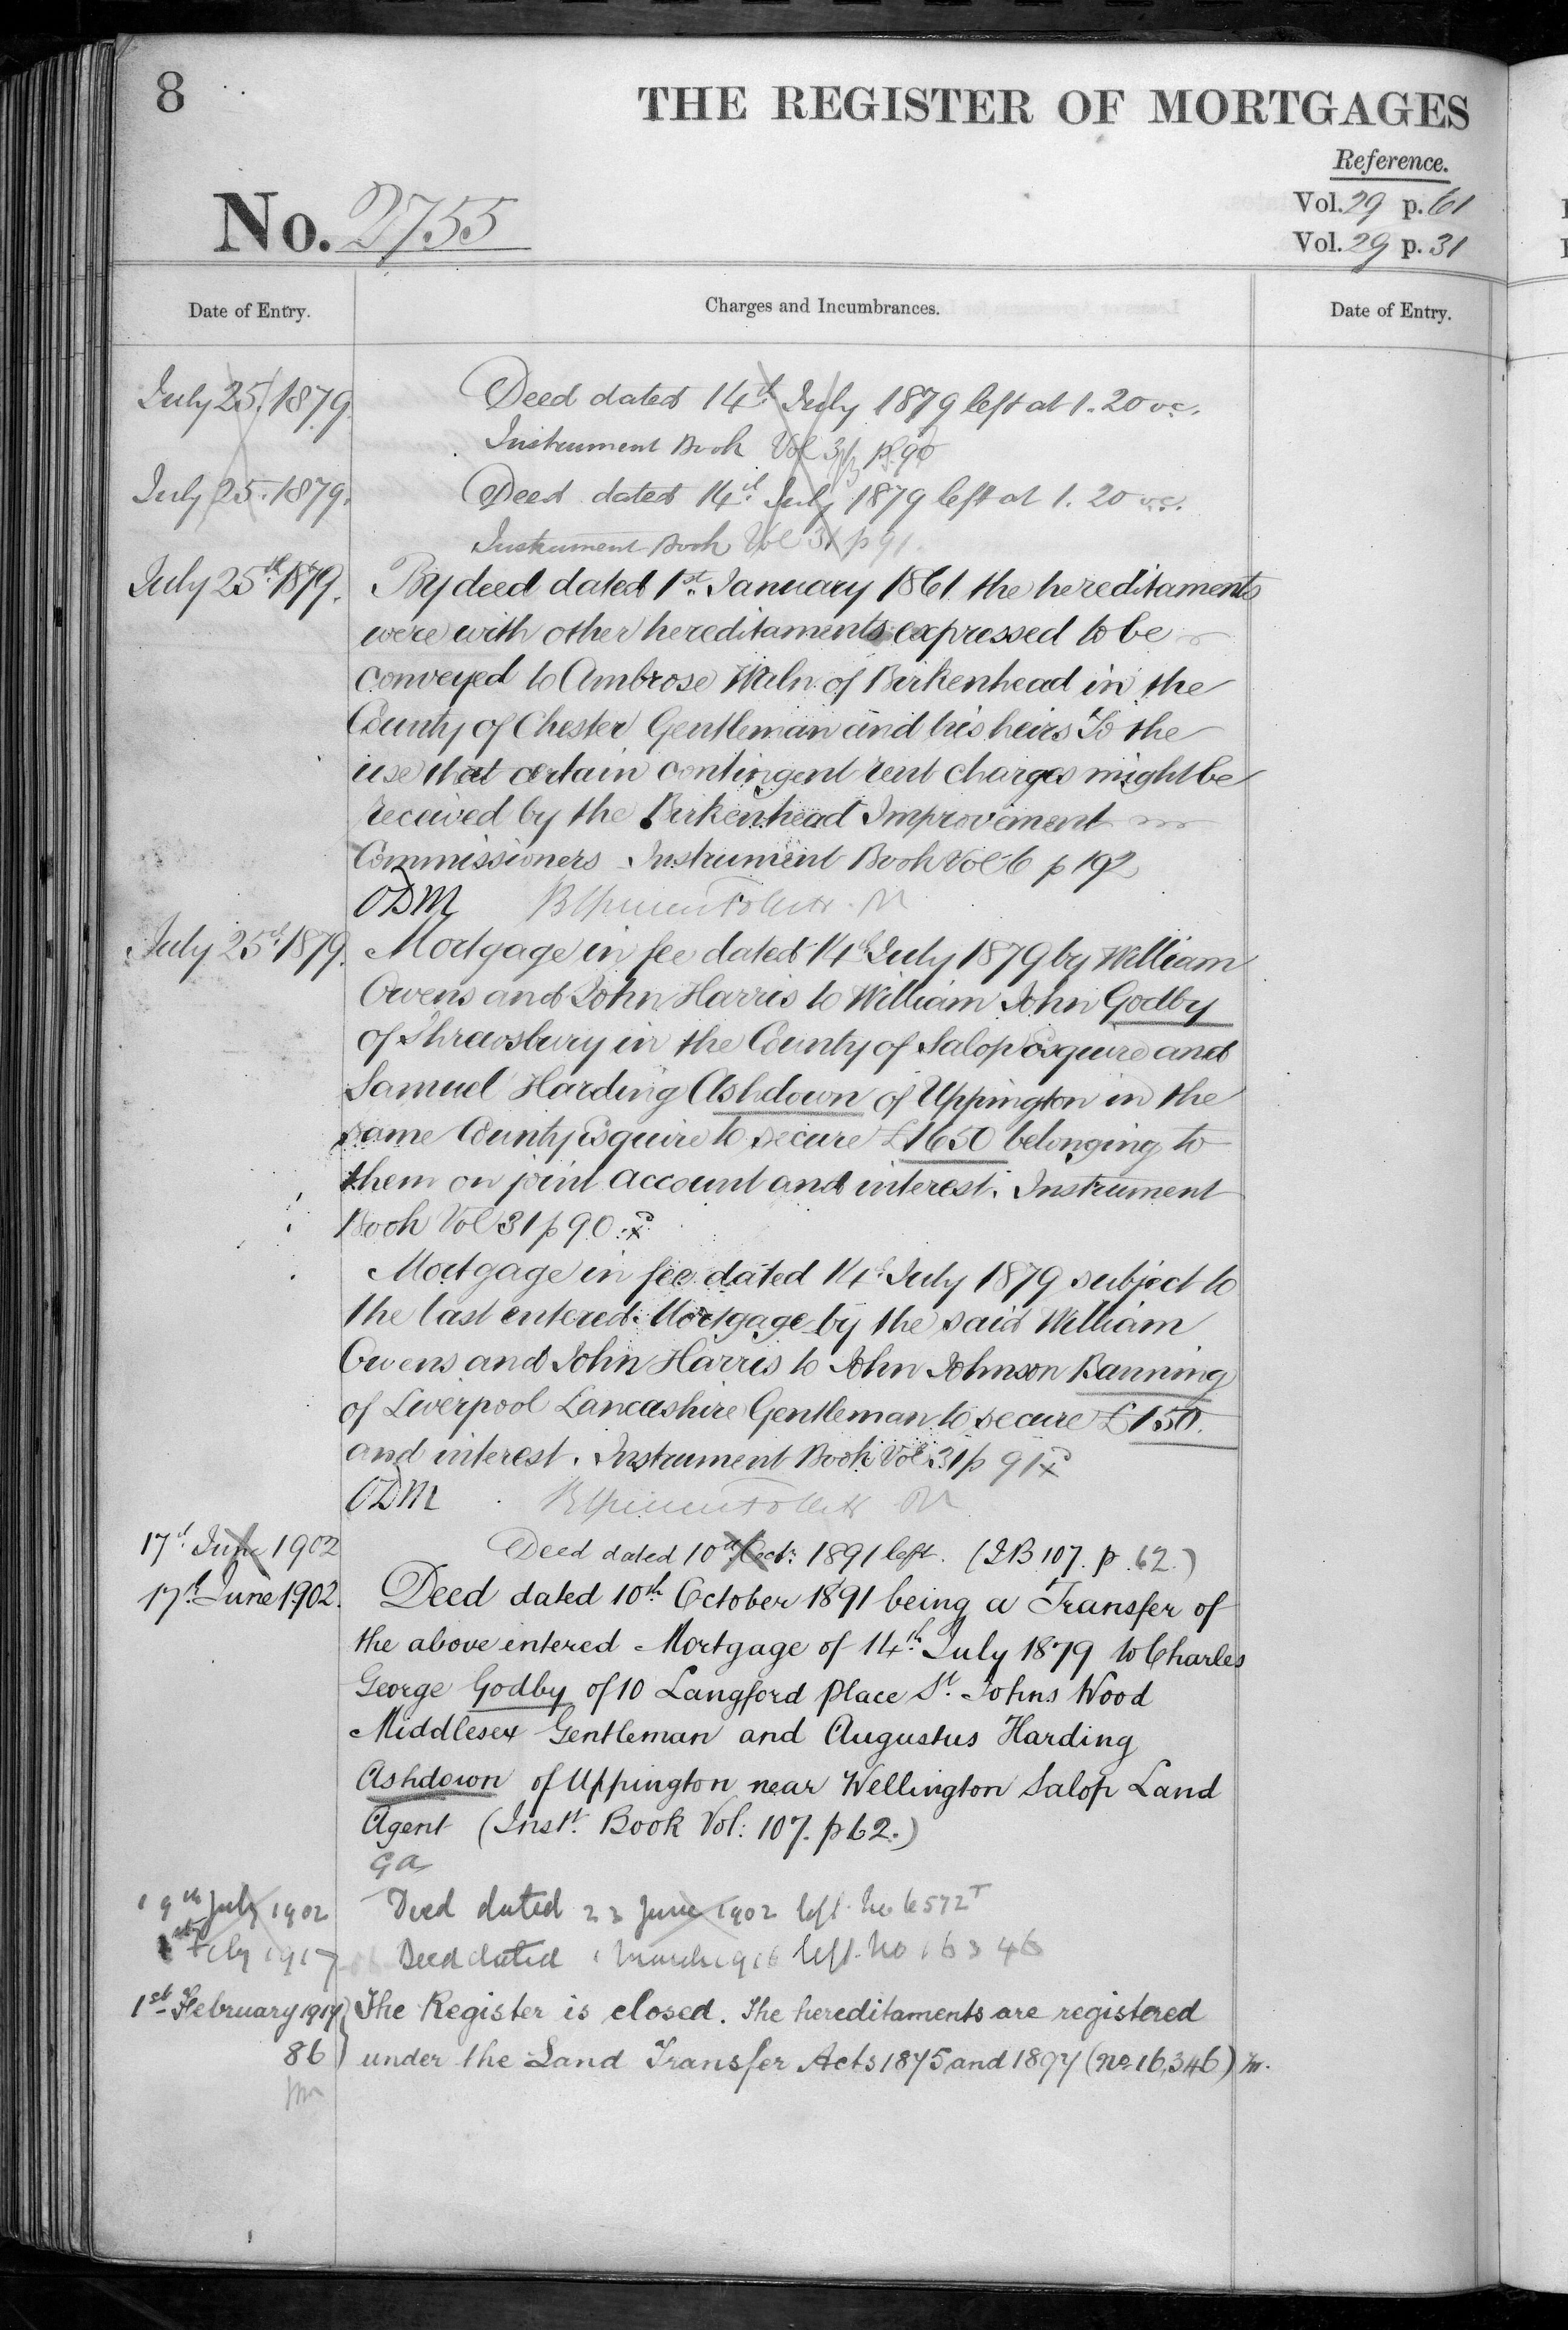 8
THE REGISTER OF MORTGAGES
Reference.
No. 2755
Vol. 29 p. 61
Vol. 29 p. 31
Date of Entry.
Charges and Incumbrances.
Date of Entry.
July 25. 1879. Deed dated 14th July 1879 left at 1.20
Instrument Book Vol 31 p 90
July 25. 1879. Deed dated 14th July 1879 left at 1.20
Instrument Book Vol 31 p 91.
July 25th 1879. By deed dated 1st January 1861 the hereditaments
were with other hereditaments expressed to be
conveyed to Ambrose Waln of Birkenhead in the
County of Chester Gentleman and his heirs To the
use that certain contingent rent charges might be
received by the Birkenhead Improvement
Commissioners Instrument Book Vol 6 p 192
ODM
July 25th 1879. Mortgage in fee dated 14th July 1879 by William
Owens and John Harris to William John Godby
of Shrewsbury in the County of Salop Esquire and
Samuel Harding Ashdown of Uppington in the
same County Esquire to secure £1650 belonging to
them on joint account and interest. Instrument
Book Vol 31 p 90.
Mortgage in fee dated 14th July 1879 subject to
the last entered Mortgage by the said William
Owens and John Harris to John Johnson Banning
of Liverpool Lancashire Gentleman to secure £150.
and interest. Instrument Book Vol 31 p 91
ODM
17th June 1902 Deed dated 10th Octr: 1891 left. (IB 107. p. 62.)
17th June 1902. Deed dated 10th October 1891 being a Transfer of
the above entered Mortgage of 14th July 1879 to Charles
George Godby of 10 Langford Place St. Johns Wood
Middlesex Gentleman and Augustus Harding
Ashdown of Uppington near Wellington Salop Land
Agent (Inst. Book Vol: 107. p 62.)
GA
19th July 1902 Deed dated 23 June 1902 left No 6572T
1st Feby 1917 Deed dated 1 March 1916 left No 16346
1st February 1917 The Register is closed. The hereditaments are registered
86 under the Land Transfer Acts 1875 and 1897 (No. 16,346)